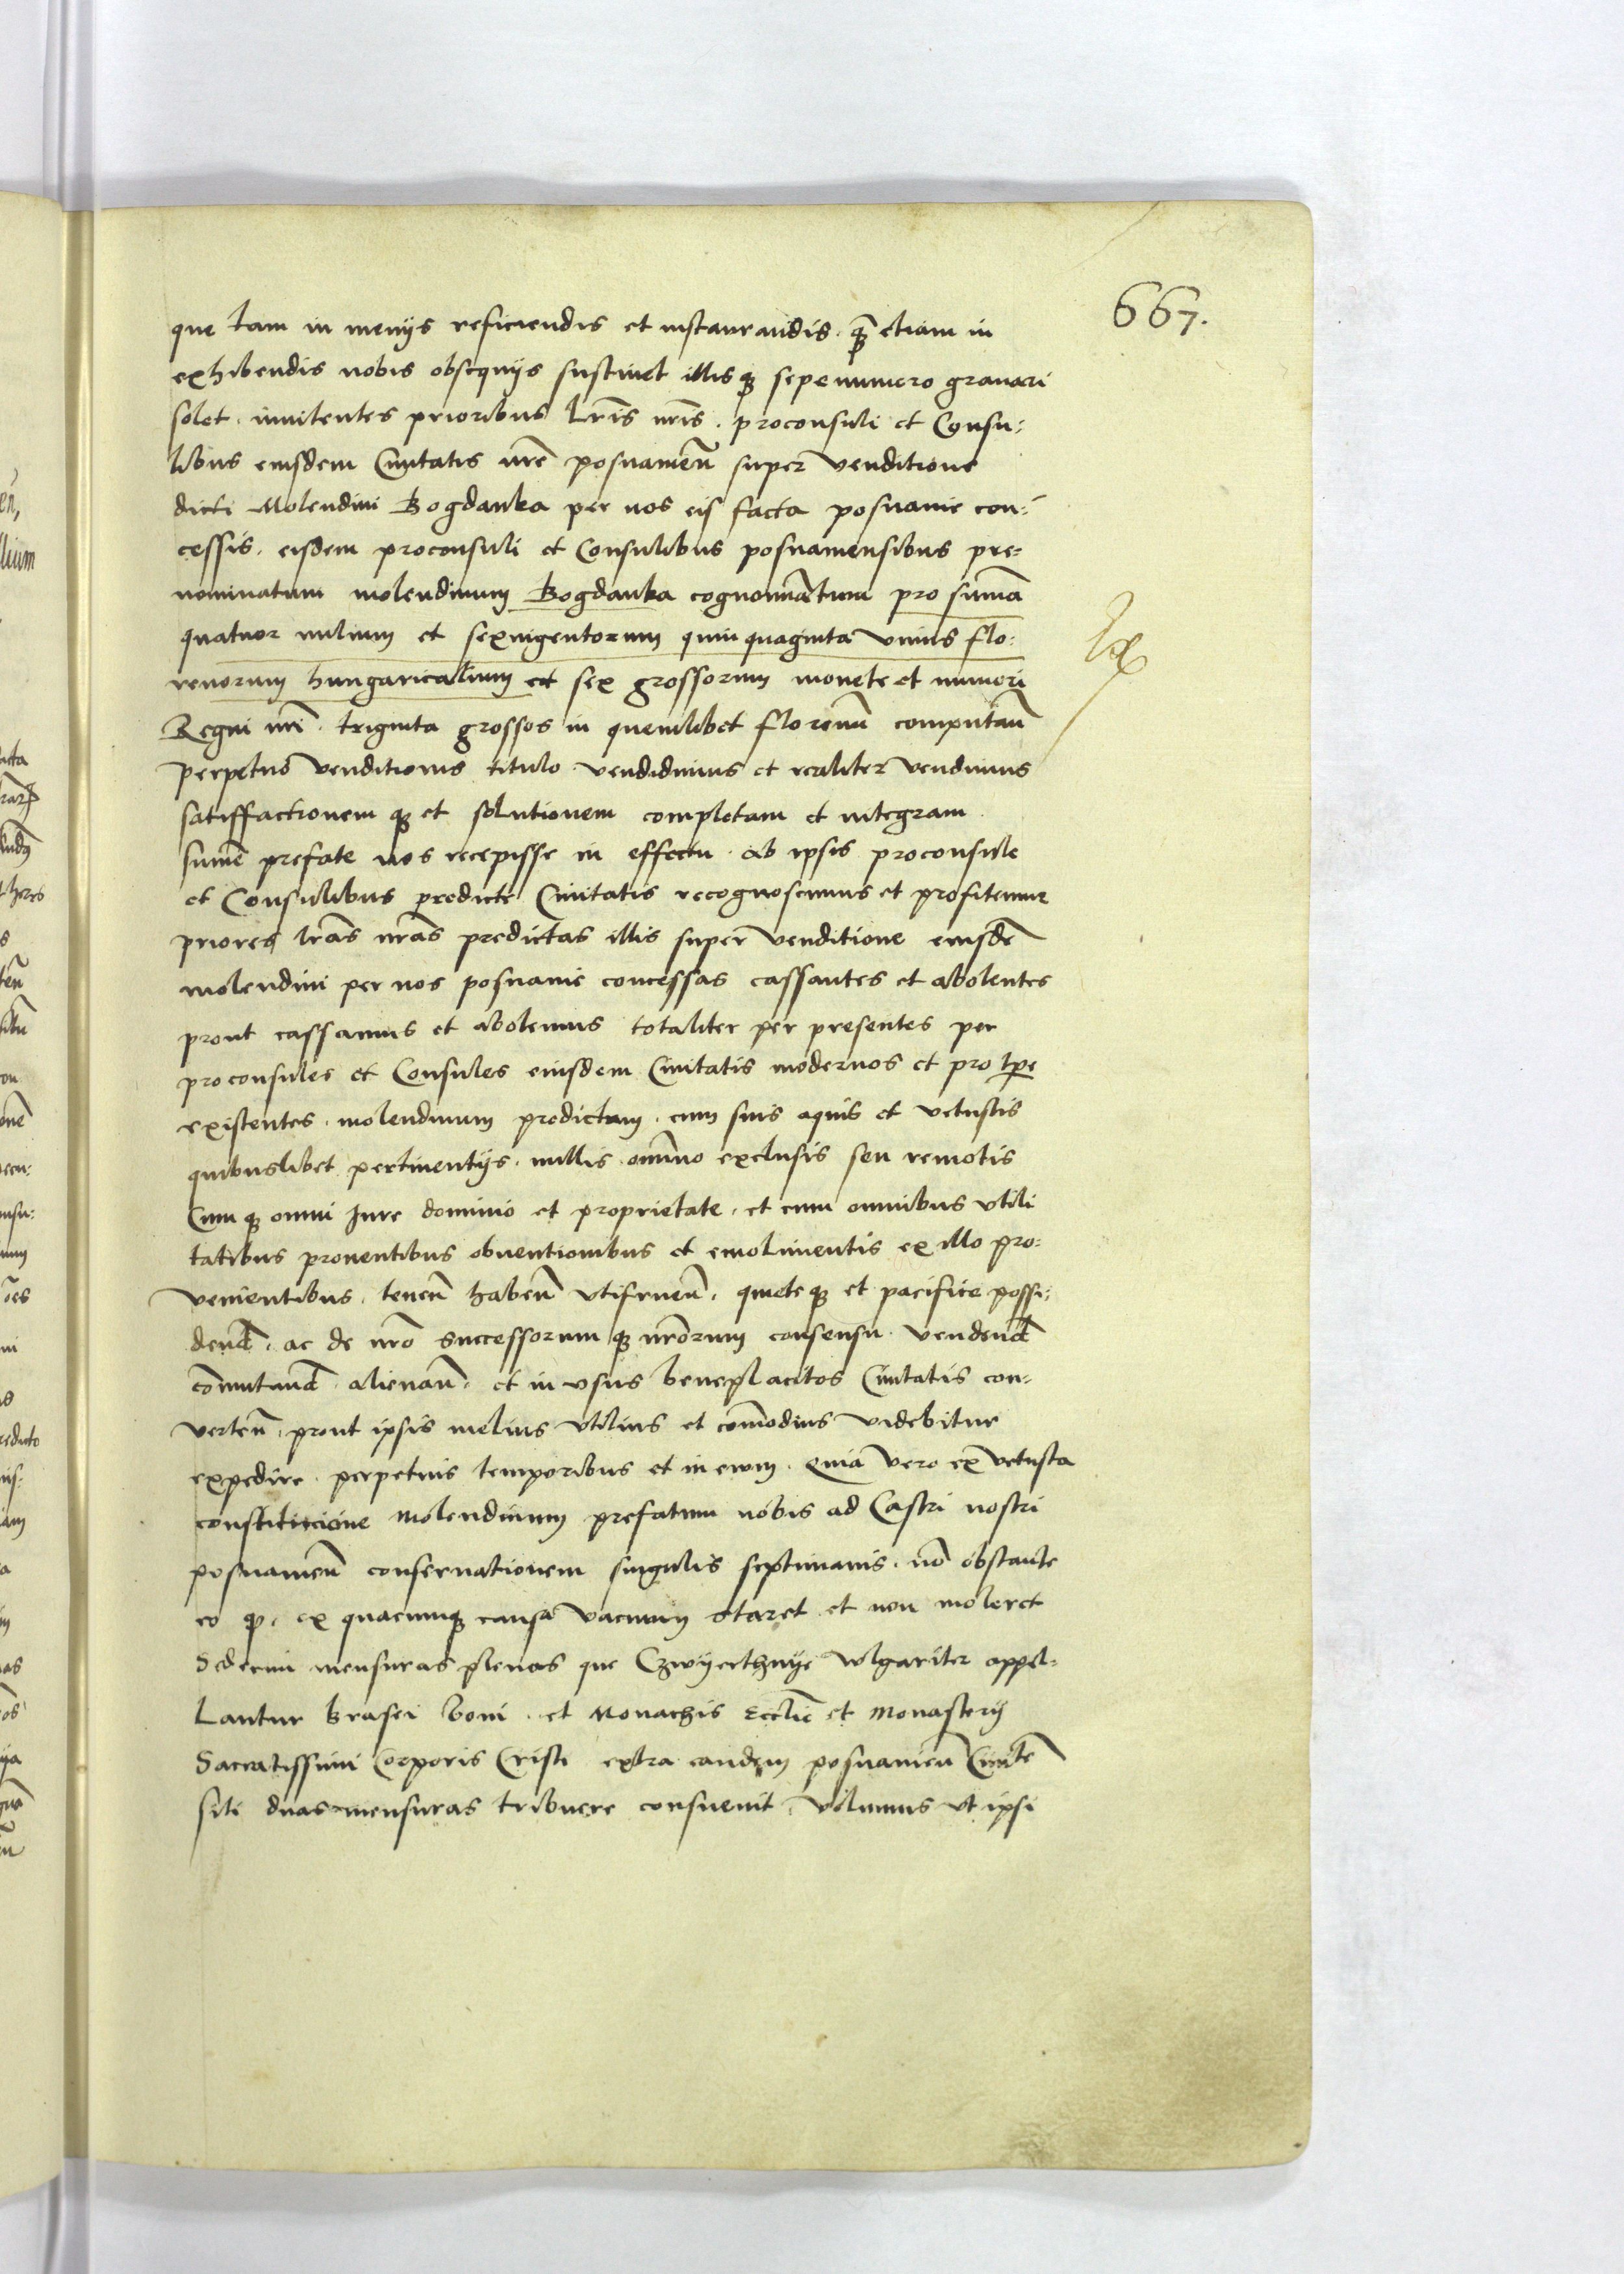 667.
que tam in menijs reficiendis et instaurandis. q̃ etiam in
exhibendis nobis obsequijs sustinet illisq3 sepenumero grauari
solet. innitentes prioribus lr̃is nr̃is. proconsuli et Consu:
libus eiusdem Ciuitatis nr̃e posnanień super venditione
dicti Molendini Bogdanka per nos eis facta posnanie con:
cessis. eisdem proconsuli et Consulibus posnaniensibus pre:
nominatum molendinum Bogdanka cognomiãtum pro sum̃a
quatuor milium et sexingentorum quinquaginta vnius flo:
renorum hungaricalium et sex grossorum monete et numeri
Regni nr̃i. triginta grossos in quemlibet florenũ computañ
perpetuo venditionis titulo vendidimus et realiter vendimus
satisffactionemq3 et solutionem completam et integram
sum̃e prefate nos recepisse in effectu ab ipsis proconsule
et Consulibus predicte Ciuitatis recognoscimus et profitemur
priores lr̃as nr̃as predictas illis super venditione eiusdẽ
molendini per nos posnanie concessas cassantes et abolentes
prout cassamus et abolemus totaliter per presentes per
proconsules et Consules eiusdem Ciuitatis modernos et pro tp̃e
existentes. molendinum predictum. cum suis aquis et vetustis
quibuslibet pertinentijs. nullis omĩno exclusis seu remotis
Cumq3 omni Jure dominio et proprietate. et cum omnibus vtili
tatibus prouentibus obuentionibus et emolimentis ex illo pro:
venientibus. teneñ habeñ vtifrueñ. quieteq3 et pacifice possi:
dend̃. ac de nr̃o successorumq3 nr̃orum consensu. vendend̃
com̃utand̃. alienañ. et in vsus beneplacitos Ciuitatis con:
verteñ. prout ipsis melius vtilius et com̃odius videbitur
expedire. perpetuis temporibus et in ewm. Quia vero ex vetusta
constitucione molendinum prefatum nobis ad Castri nostri
posnanień conseruationem singulis septimanis. nõ obstante
eo q. ex quacumq3 causa vacuum staret et non moleret
Sedecim mensuras plenas que Czwyerthnye wlgariter appel:
lantur Brasei boni. et Monachis Ecclĩe et Monasterij
Sacratissimi Corporis Cristi extra eandem posnanień Ciuitẽ
siti duas mensuras tribuere consueuit. Volumus vt ipsi